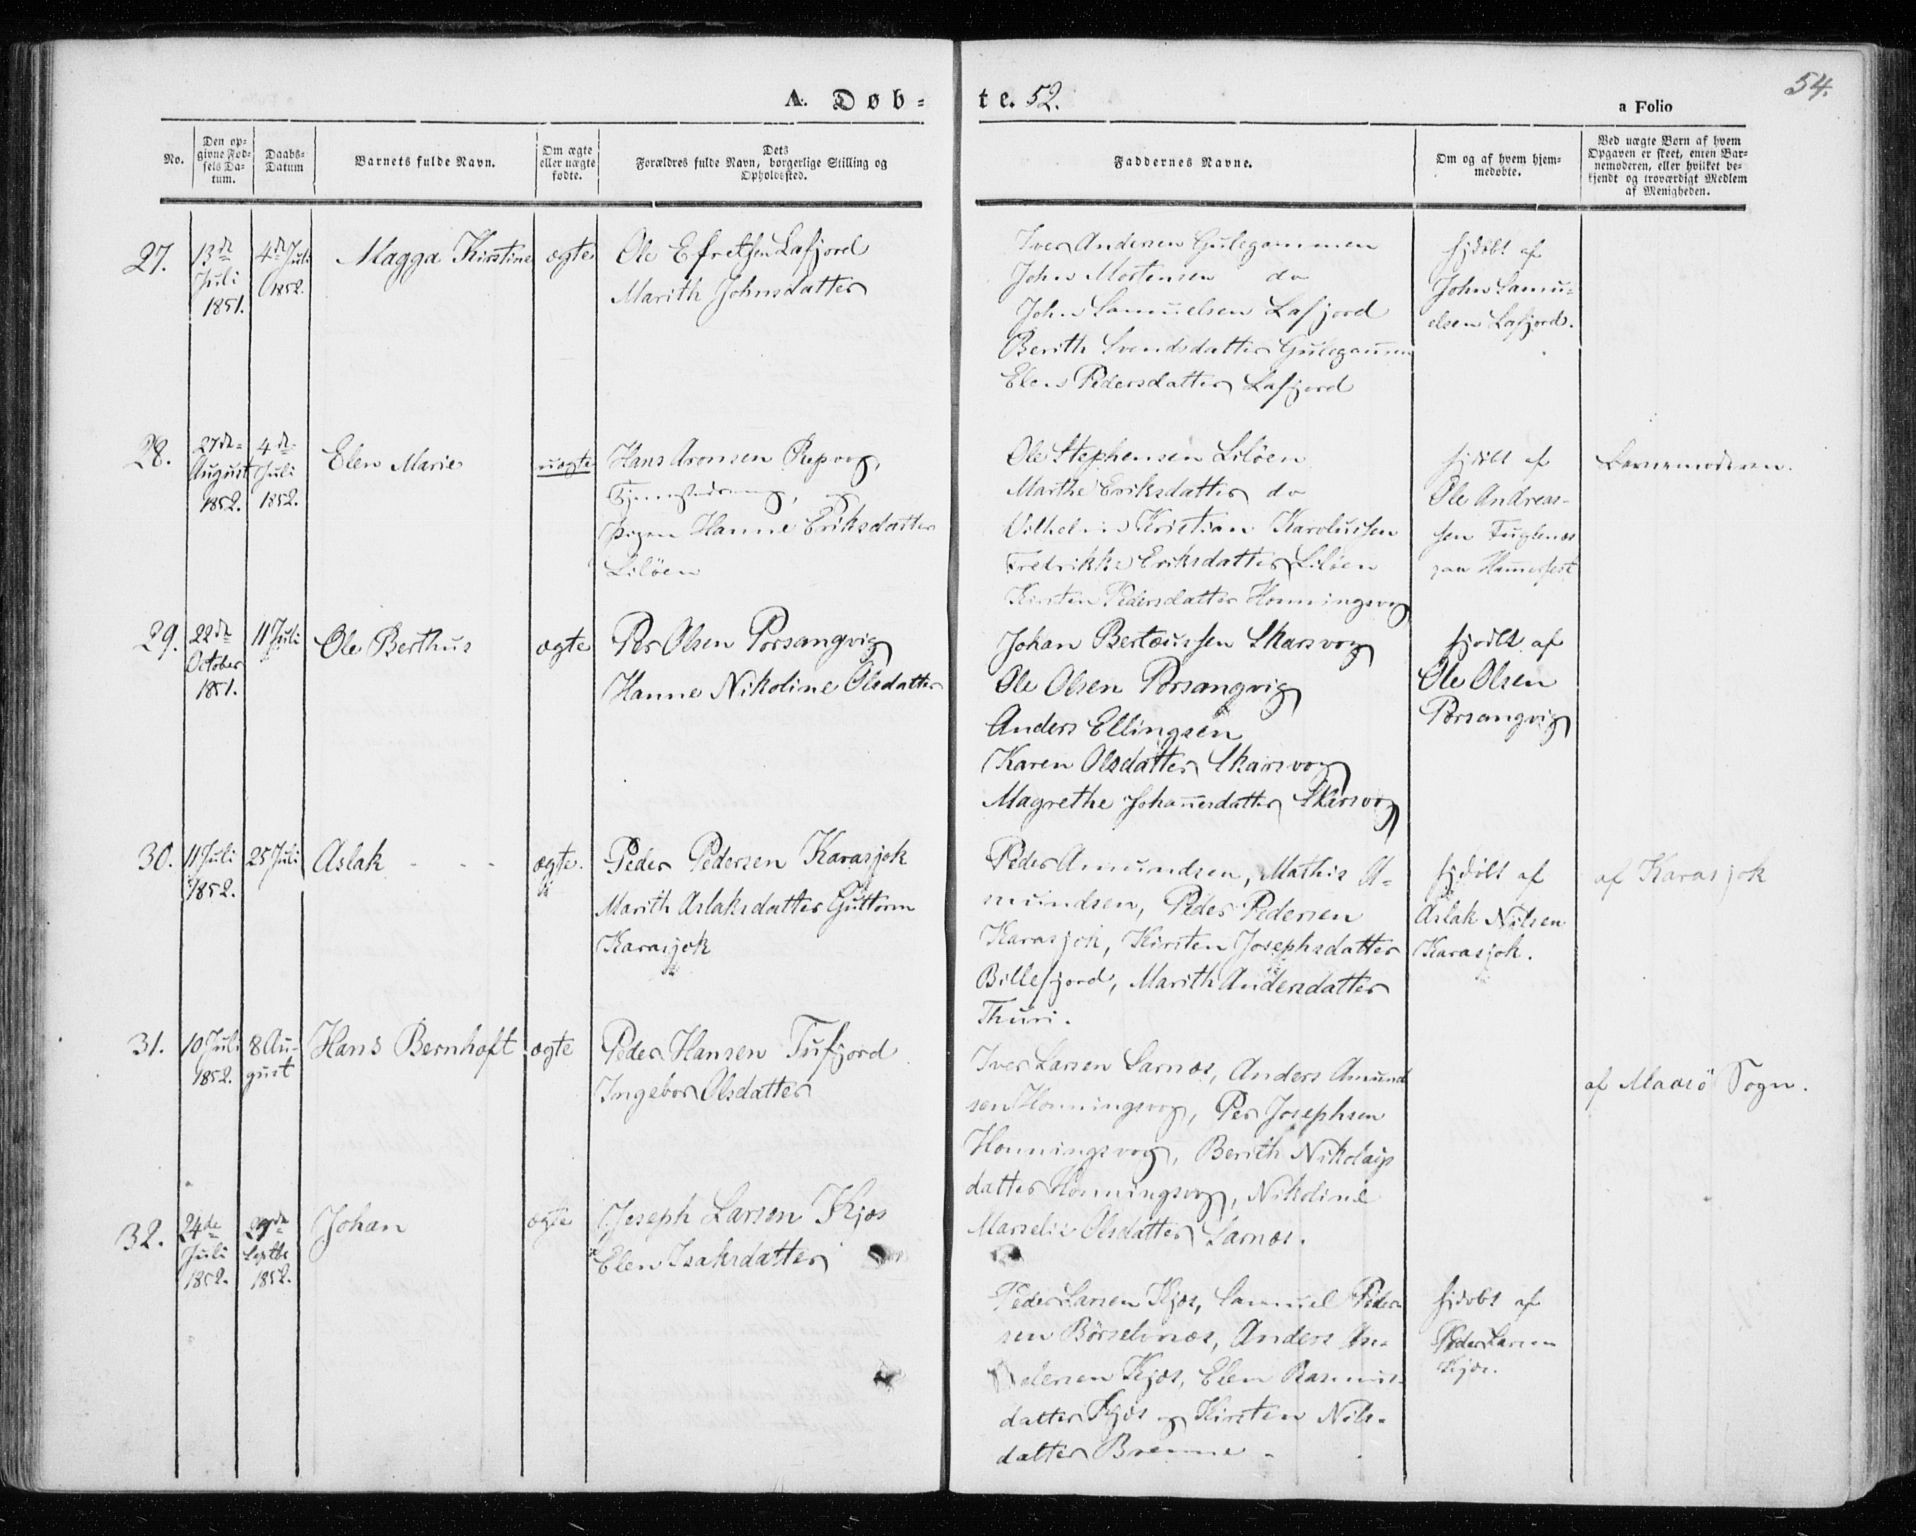 54.
A. Døb-te. 52.
a Folio
No.
Den op-
givne Fød-
sels Da-
tum.
Daabs-
Datum
Barnets fulde Navn.
Om ægte
eller uægte
fødte.
Dets
Forældres fulde Navn, borgerlige Stilling og
Opholdssted.
Faddernes Navne.
Om og af hvem hjem-
medøbte.
Ved uægte Børn af hvem
Opgaven er skeet, enten Bar-
nemoderen, eller hvilket be-
kjendt og troværdigt Medlem
af Menigheden.
27.
13de
Juli
1851.
4de Juli
1852.
Magga Kirstine
ægte
Ole Efretsen Lafjord
Marith Johnsdatter
Iver Andersen Gulegammen
John Mortensen do
John Samuelsen Lafjord
Berith Svendsdatter Gulegammen
Elen Pedersdatter Lafjord
hjdøbt af
John Samu-
elsen Lafjord.
28.
27de
August
1852.
4de
Juli
1852.
Elen Marie
uægte
Hans Aronsen Repvog,
og
Pigen Hanne Eriksdatter
Liløen
Ole Stephensen Liløen
Marthe Eriksdatter do
Vilhelm Kristian Karolussen
Fredrikke Eriksdatter Liløen
Kirsten Pedersdatter Honningsvog
hjdøbt af
Ole Andreas-
sen Fuglenæs
paa Hammerfest
Barnemoderen.
29.
22de
October
1851.
11 Juli
Ole Berthus
ægte
Per Olsen Porsangvig
Hanne Nikoline Olsdatter
Johan Bertæussen Skarsvog
Ole Olsen Porsangvig
Anders Ellingsen
Karen Olsdatter Skarsvog
Magrethe Johannesdatter Skarsvog
hjdøbt af
Ole Olsen
Porsangvig
30.
11 Juli
1852.
25 Juli
Aslak - - -
ægte.
Peder Pedersen Karasjok
Marith Aslaksdatter Guttorm
Karasjok
Peder Amundsen, Mathis A-
mundsen, Peder Pedersen
Karasjok, Kirsten Josephsdatter
Billefjord, Marith Andersdatter
Thuri.
hjdøbt af
Aslak Nilsen
Karasjok.
af Karasjok
31.
10 Juli
1852.
8 Au-
gust
Hans Bernhoft
ægte
Peder Hansen Tufjord
Ingebor Olsdatter
Iver Larsen Sarnæs, Anders Amund
sen Honningsvog, Per Josephsen
Honningsvog, Berith Nikolays
datter Honningsvog, Nikoline
Marselie Olsdatter Sarnæs.
af Maasö Sogn.
32.
24de
Juli
1852.
29de
Septbr
1852.
Johan
ægte
Joseph Larsen Kjæs
Elen Isaksdatter
Peder Larsen Kjæs, Samuel Peder
sen Börselvnæs, Anders An-
dersen Kjæs, Elen Rasmus-
datter Kjæs og Kirsten Nils-
datter Brenne -
hjdøbt af
Peder Larsen
Kjæs.